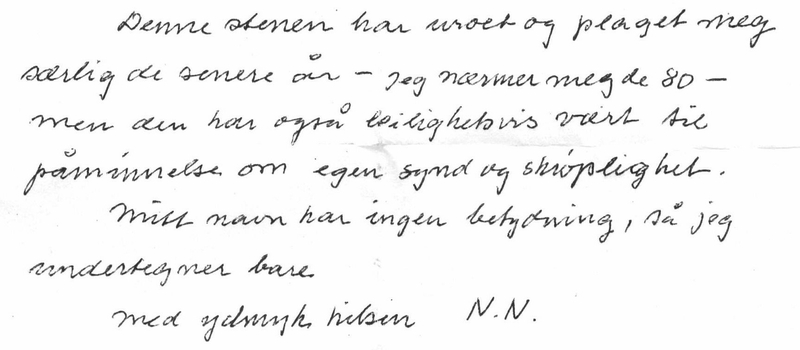 Denne stenen har uroet og plaget meg
særlig de senere år – jeg nærmer meg de 80 –
men den har også leilighetsvis vært til
påminnelse om egen synd og skrøplighet.
Mitt navn har ingen betydning, så jeg
undertegner bare
med ydmyk hilsen N.N.